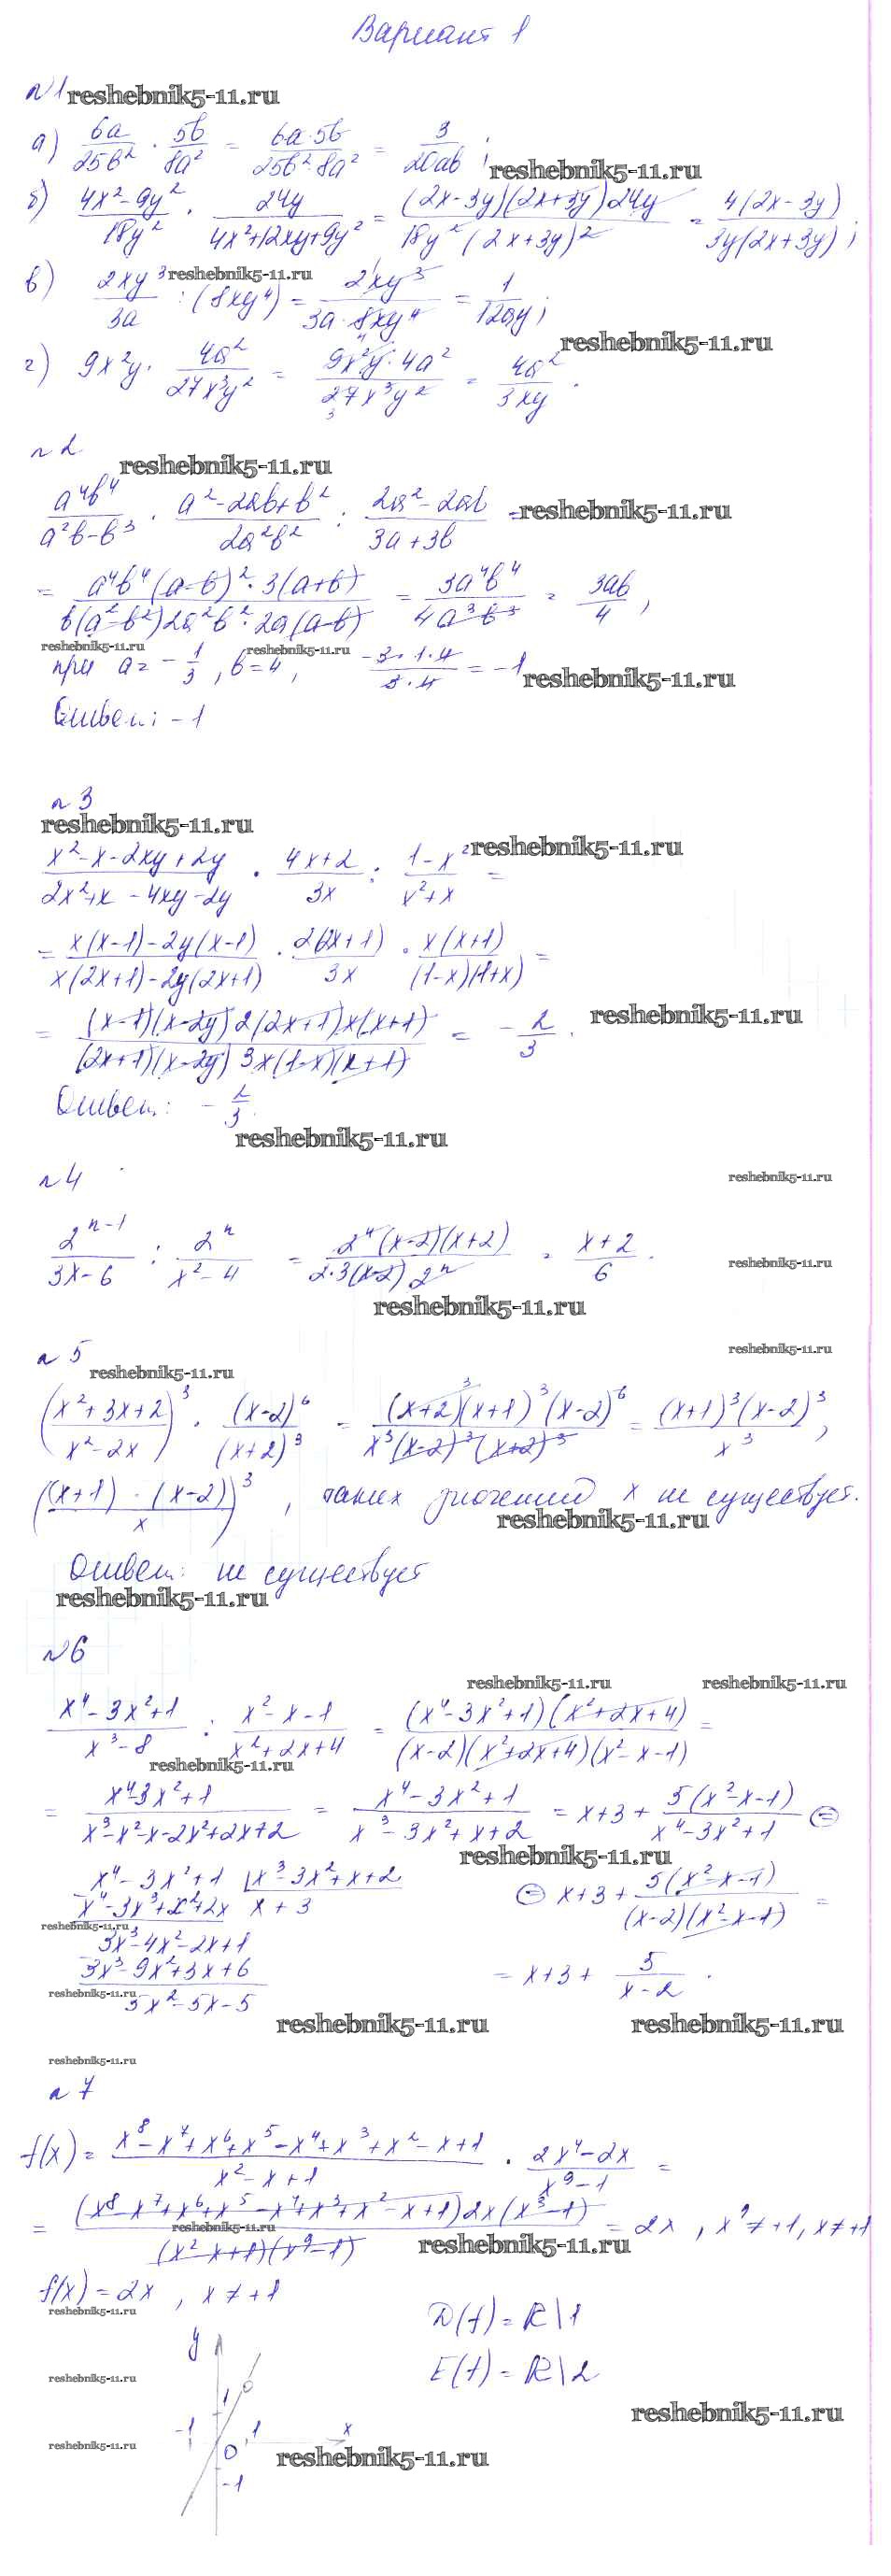 Вариант 1
№1 reshebnik5-11.ru
а) 6a/25b² · 5b/8a² = 6a·5b/25b²·8a² = 3/20ab ; reshebnik5-11.ru
б) 4x²-9y²/18y² · 24y/4x²+12xy+9y² = (2x-3y)(2x+3y)24y/18y²(2x+3y)² = 4(2x-3y)/3y(2x+3y) ;
reshebnik5-11.ru
в) 2xy³/3a : (8xy⁴) = 2xy³/3a·8xy⁴ = 1/12ay ;
reshebnik5-11.ru
г) 9x²y · 4a²/27x³y² = 9x²y·4a²/27x³y² = 4a²/3xy .
№2
reshebnik5-11.ru
a⁴b⁴/a²b-b³ · a²-2ab+b²/2a²b² : 2a²-2ab/3a+3b = reshebnik5-11.ru
= a⁴b⁴(a-b)²·3(a+b)/b(a²-b²)2a²b²·2a(a-b) = 3a⁴b⁴/4a³b³ = 3ab/4 ,
reshebnik5-11.ru reshebnik5-11.ru
при a = -1/3 , b=4 , -3·1·4/3·4 = -1 reshebnik5-11.ru
Ответ: -1
№3
reshebnik5-11.ru
reshebnik5-11.ru
x²-x-2xy+2y/2x²+x-4xy-2y · 4x+2/3x : 1-x²/x²+x =
= x(x-1)-2y(x-1)/x(2x+1)-2y(2x+1) · 2(2x+1)/3x · x(x+1)/(1-x)(1+x) =
= (x-1)(x-2y)2(2x+1)x(x+1)/(2x+1)(x-2y)3x(1-x)(x+1) = -2/3 . reshebnik5-11.ru
Ответ: -2/3.
reshebnik5-11.ru
№4 reshebnik5-11.ru
2ⁿ⁻¹/3x-6 : 2ⁿ/x²-4 = 2ⁿ(x-2)(x+2)/2·3(x-2)2ⁿ = x+2/6 . reshebnik5-11.ru
reshebnik5-11.ru
№5 reshebnik5-11.ru
reshebnik5-11.ru
(x²+3x+2/x²-2x)³ · (x-2)⁶/(x+2)³ = (x+2)³(x+1)³(x-2)⁶/x³(x-2)³(x+2)³ = (x+1)³(x-2)³/x³ ,
((x+1)·(x-2)/x)³ , таких значений x не существует.
reshebnik5-11.ru
Ответ: не существует
reshebnik5-11.ru
№6
reshebnik5-11.ru reshebnik5-11.ru
x⁴-3x²+1/x³-8 : x²-x-1/x²+2x+4 = (x⁴-3x²+1)(x²+2x+4)/(x-2)(x²+2x+4)(x²-x-1) =
reshebnik5-11.ru
= x⁴-3x²+1/x³-x²-x-2x²+2x+2 = x⁴-3x²+1/x³-3x²+x+2 = x+3+ 5(x²-x-1)/x⁴-3x²+1 ⊜
reshebnik5-11.ru
x⁴-3x²+1 | x³-3x²+x+2
x⁴-3x³+x²+2x x+3 ⊜ x+3+ 5(x²-x-1)/(x-2)(x²-x-1) =
reshebnik5-11.ru
3x³-4x²-2x+1
3x³-9x²+3x+6 = x+3+ 5/x-2 .
reshebnik5-11.ru
5x²-5x-5
reshebnik5-11.ru reshebnik5-11.ru
reshebnik5-11.ru
№7
f(x)= x⁸-x⁷+x⁶+x⁵-x⁴+x³+x²-x+1/x²-x+1 · 2x⁴-2x/x⁹-1 =
= (x⁸-x⁷+x⁶+x⁵-x⁴+x³+x²-x+1)2x(x³-1)/(x²-x+1)(x⁹-1) = 2x , x⁹≠+1, x≠+1
reshebnik5-11.ru reshebnik5-11.ru
f(x)=2x , x≠+1
reshebnik5-11.ru
D(f)=R\1
y
E(f)=R\2
reshebnik5-11.ru
1
reshebnik5-11.ru
-1 1 x
0
reshebnik5-11.ru reshebnik5-11.ru
-1